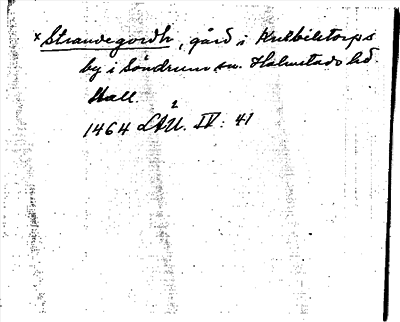 × Strandegordh, gård i Kulbiltorps
by i Söndrum sn. Halmstads hd.
Hall.
1464 LAU² IV: 41